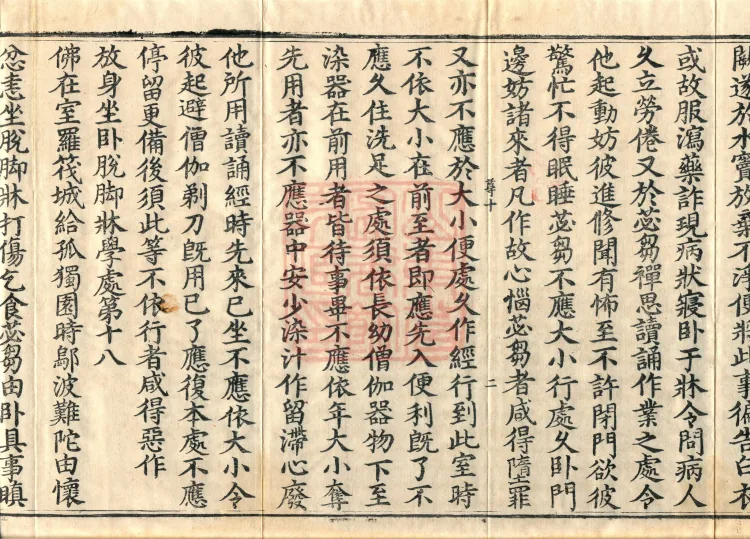 於水竇放棄不淨但將此事徧告白
或故服瀉藥詐現病狀寢卧于牀令問病人
久立勞倦又於苾芻禪思讀誦作業之處令
他起動妨彼進修聞有怖至不許閉門欲彼
驚忙不得眠睡苾芻不應大小行處久卧門
邊妨諸來者凡作故心惱苾芻者咸得墮罪
十 二
又亦不應於大小便處久作經行到此室時
不依大小在前至者即應先入便利旣了不
應久住洗足之處須依長幼僧伽器物下至
染器在前用者皆待事畢不應依年大小奪
先用者亦不應器中安少染汁作留滯心廢
他所用讀誦經時先來已坐不應依大小令
彼起避僧伽剃刀旣用已了應復本處不應
停留更備後須此等不依行者咸得惡作
放身坐卧脫脚牀學處第十八
佛在室羅筏城給孤獨園時鄔波難陀由懷
忿恚坐脫脚牀打傷乞食苾芻由卧具事瞋